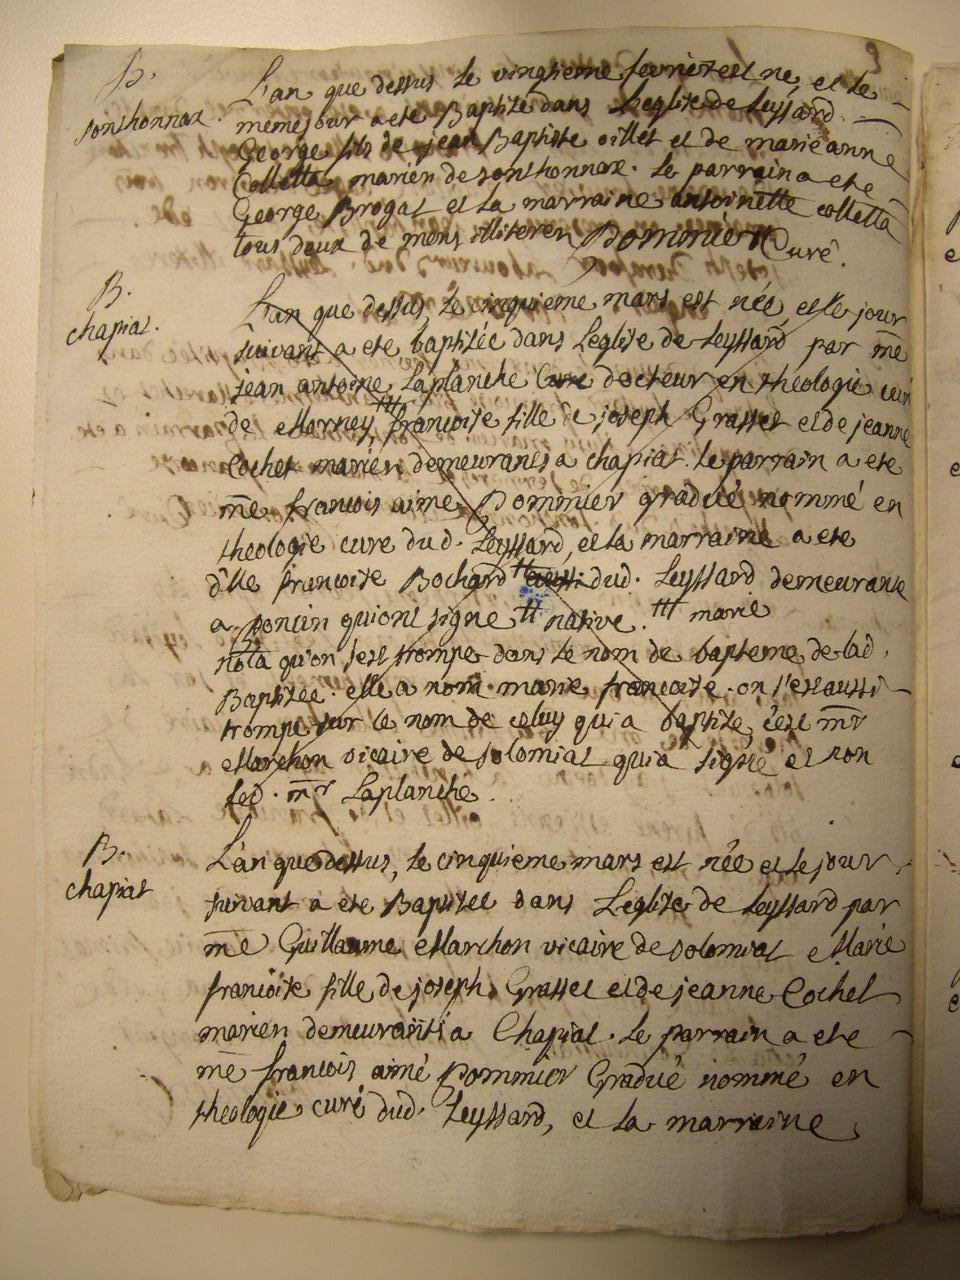 B.
sonthonnax.
L'an que dessus le vingtieme fevrier est né et le
meme jour a eté Baptisé dans L'eglise de Leyssard
George fils de jean Baptiste oillet et de marieanne
Colletta mariéz de sonthonnax. Le parrain a eté
George Brogat et la marraine antoinette colletta
tous deux de mens illiterez Pommier Curé.
B.
chapiat.
L'an que dessus, le cinquieme mars est née et le jour
suivant a eté baptisée dans L'eglise de Leyssard par me
jean antoine Laplanche Curé docteur en theologie curé
de Mornay ttt françoise fille de joseph Grasset et de jeanne
Cochet mariéz demeurants a chapiat. le parrain a eté
me françois aimé Pommier gradué nommé en
theologie curé dud. Leyssard, et la marraine a eté
dlle françoise Bochard tt aussi dud. Leyssard demeurante
a poncin qui ont signé tt native. ttt marie
nota qu'on s'est trompé dans le nom de bapteme de lad.
Baptisée. elle a nom marie françoise. on s'est aussi
trompé sur le nom de celuy qui a baptisé, c'est mr
Marchon vicaire de solomiat qui a signé et non
led. mr Laplanche.
B.
chapiat
L'an que dessus, le cinquieme mars est née et le jour
suivant a eté Baptisée dans L'eglise de Leyssard par
me Guillaume Marchon vicaire de solomiat Marie
françoise fille de joseph Grasset et de jeanne Cochet
mariéz demeurants a Chapiat. le parrain a eté
me françois aimé Pommier Gradué nommé en
theologie curé dud. Leyssard, et la marraine